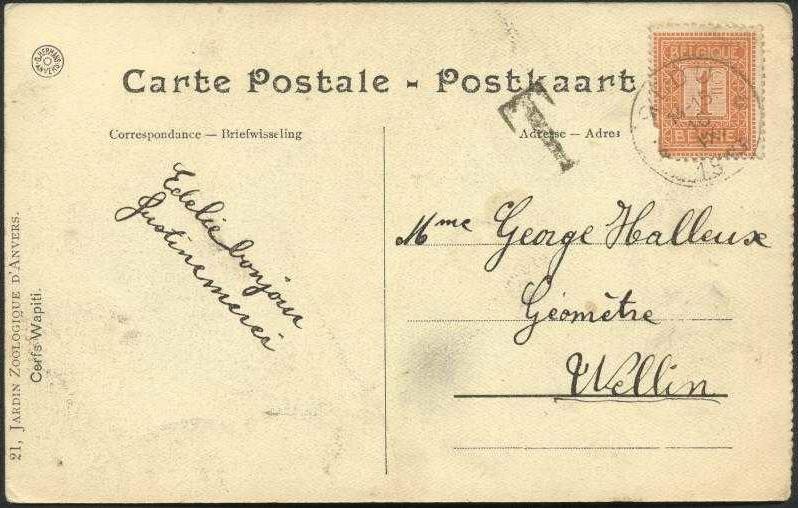 G. HERMANS
ANVERS
Carte Postale - Postkaart
Correspondance — Briefwisseling
Adresse — Adres
BELGIQUE
1
BELGIE
T
Edelie bonjour
Justine merci
Mme George Halleux
Géomètre
Wellin
21, JARDIN ZOOLOGIQUE D'ANVERS.
Cerfs Wapiti.